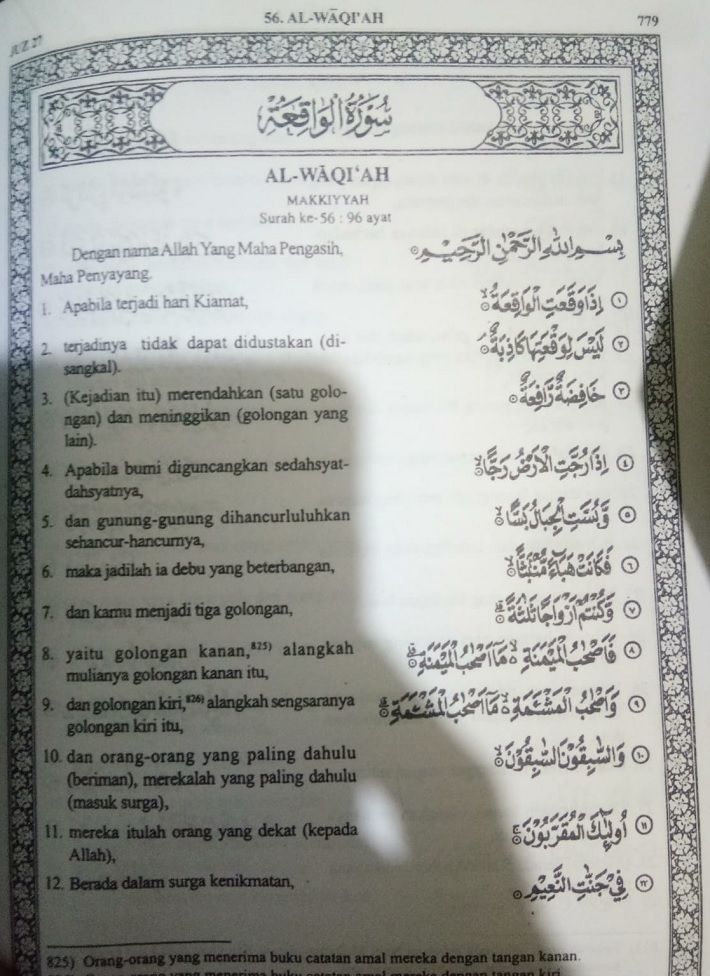 56. AL-WĀQI'AH
779
JUZ 27
سُورَةُ الْوَاقِعَةِ
AL-WĀQI‘AH
MAKKIYYAH
Surah ke-56 : 96 ayat
Dengan nama Allah Yang Maha Pengasih,
Maha Penyayang.
بِسْمِ اللّٰهِ الرَّحْمٰنِ الرَّحِيْمِ
1. Apabila terjadi hari Kiamat,
اِذَا وَقَعَتِ الْوَاقِعَةُۙ ١
2. terjadinya tidak dapat didustakan (di-
sangkal).
لَيْسَ لِوَقْعَتِهَا كَاذِبَةٌۘ ٢
3. (Kejadian itu) merendahkan (satu golo-
ngan) dan meninggikan (golongan yang
lain).
خَافِضَةٌ رَّافِعَةٌ ٣
4. Apabila bumi diguncangkan sedahsyat-
dahsyatnya,
اِذَا رُجَّتِ الْاَرْضُ رَجًّاۙ ٤
5. dan gunung-gunung dihancurluluhkan
sehancur-hancurnya,
وَّبُسَّتِ الْجِبَالُ بَسًّاۙ ٥
6. maka jadilah ia debu yang beterbangan,
فَكَانَتْ هَبَاۤءً مُّنْۢبَثًّاۙ ٦
7. dan kamu menjadi tiga golongan,
وَّكُنْتُمْ اَزْوَاجًا ثَلٰثَةًۗ ٧
8. yaitu golongan kanan,⁸²⁵⁾ alangkah
mulianya golongan kanan itu,
فَاَصْحٰبُ الْمَيْمَنَةِ ەۙ مَآ اَصْحٰبُ الْمَيْمَنَةِۗ ٨
9. dan golongan kiri,⁸²⁶⁾ alangkah sengsaranya
golongan kiri itu,
وَاَصْحٰبُ الْمَشْـَٔمَةِ ەۙ مَآ اَصْحٰبُ الْمَشْـَٔمَةِۗ ٩
10. dan orang-orang yang paling dahulu
(beriman), merekalah yang paling dahulu
(masuk surga),
وَالسّٰبِقُوْنَ السّٰبِقُوْنَۙ ١٠
11. mereka itulah orang yang dekat (kepada
Allah),
اُولٰۤىِٕكَ الْمُقَرَّبُوْنَۚ ١١
12. Berada dalam surga kenikmatan,
فِيْ جَنّٰتِ النَّعِيْمِ ١٢
825) Orang-orang yang menerima buku catatan amal mereka dengan tangan kanan.